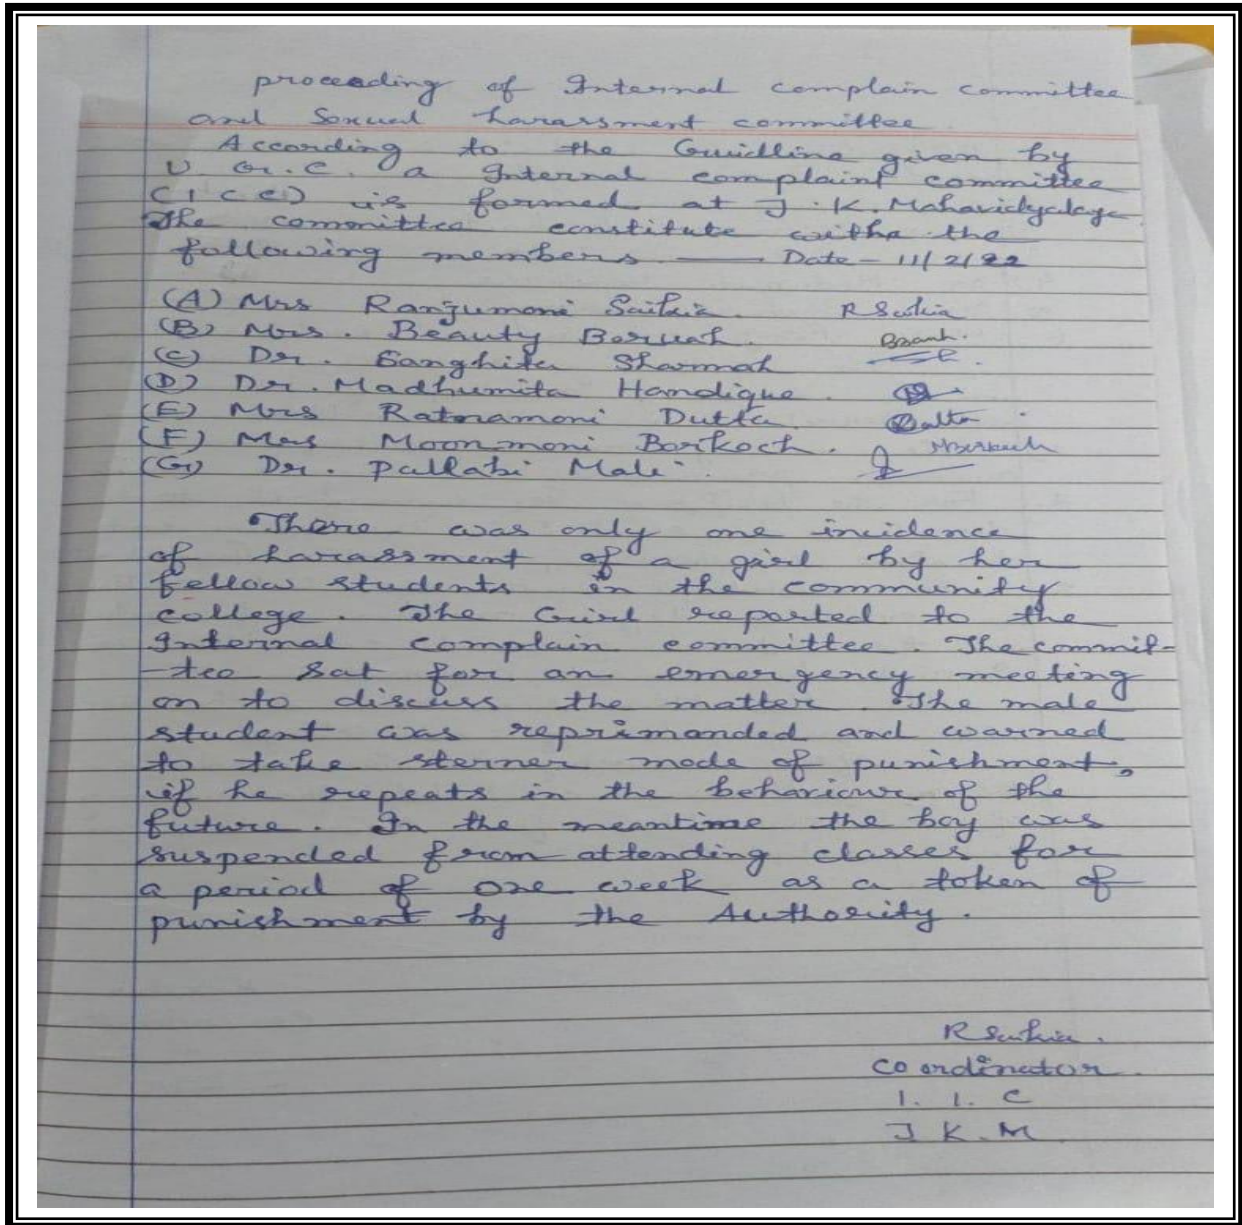 proceeding of Internal complain committee
and Sexual harassment committee
According to the Guidline given by
U.G.C. a Internal complaint committee
(ICC) is formed at J.K. Mahavidyalaya
The committee constitute withe the
following members —— Date - 11/2/22
(A) Mrs Ranjumoni Saikia. R Saikia
(B) Mrs. Beauty Boruah.
(C) Dr. Sanghita Sharmah
(D) Dr. Madhumita Handique.
(E) Mrs Ratnamoni Dutta. Dutta
(F) Mrs Moonmoni Borkoch.
(G) Dr. Pallabi Mali.
There was only one incidence
of harassment of a girl by her
fellow students in the community
college. The Girl reported to the
Internal complain committee. The commit-
-tee sat for an emergency meeting
on to discuss the matter. The male
student was reprimanded and warned
to take sterner mode of punishment,
if he repeats in the behaviour of the
future. In the meantime the boy was
suspended from attending classes for
a period of one week as a token of
punishment by the Authority.
R Saikia.
Coordinator
I. I. C
J K. M